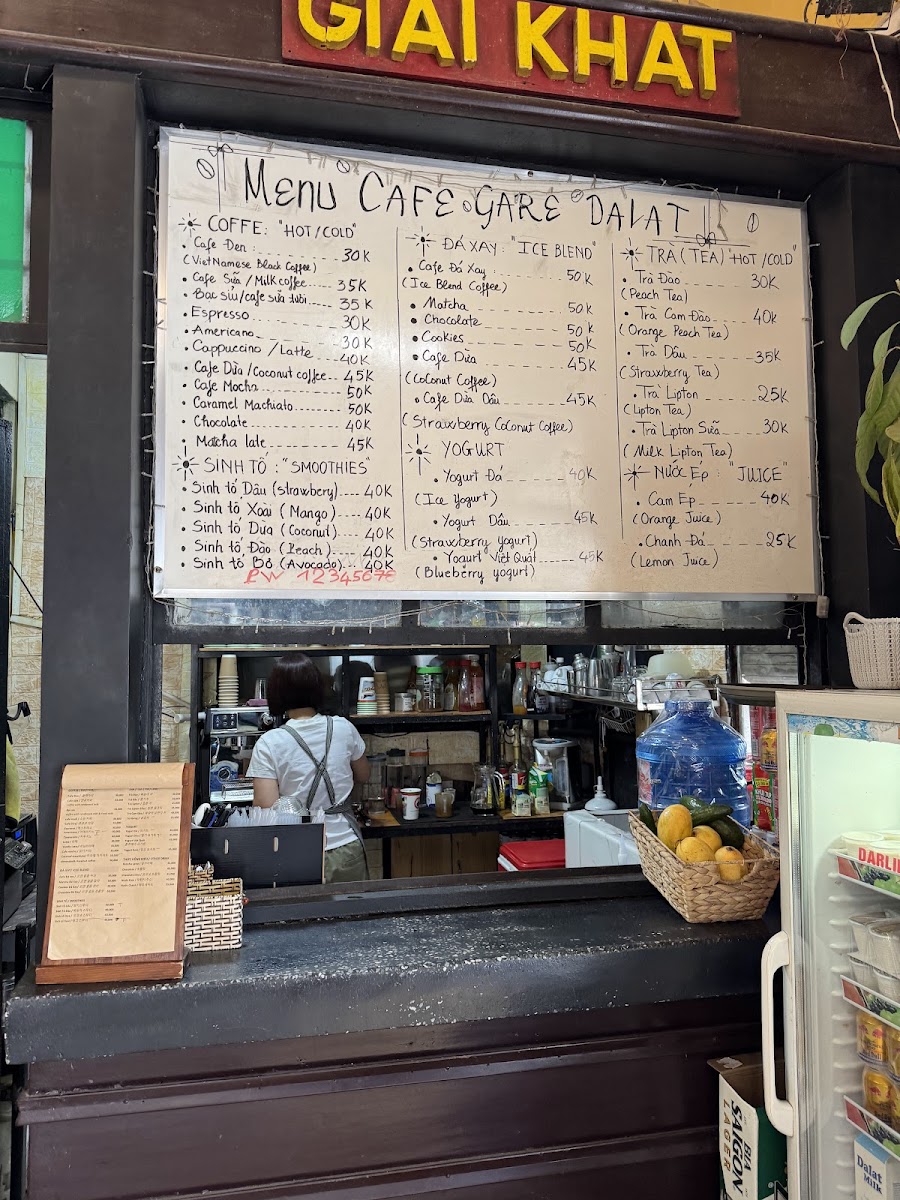 GIẢI KHÁT
MENU CAFE GARE DALAT
COFFE: "HOT/COLD"
Cafe Đen: 30K
(VietNamese Black Coffee)
Cafe Sữa / Milk coffee ---- 35K
Bạc sỉu/cafe sữa tươi --- 35K
Espresso ---- 30K
Americano ---- 30K
Cappuccino / Latte ---- 40K
Cafe Dừa / Coconut coffee -- 45K
Cafe Mocha ---- 50K
Caramel Machiato ---- 50K
Chocolate ---- 40K
Matcha late ---- 45K
SINH TỐ: "SMOOTHIES"
Sinh tố Dâu (Strawbery) ---- 40K
Sinh tố Xoài (Mango) ---- 40K
Sinh tố Dừa (Coconut) ---- 40K
Sinh tố Đào (Peach) ---- 40K
Sinh tố Bơ (Avocado) -- 40K
PW 12345678
ĐÁ XAY: "ICE BLEND"
Cafe Đá Xay ---- 50K
(Ice Blend Coffee)
Matcha ---- 50K
Chocolate ---- 50K
Cookies ---- 50K
Cafe Dừa ---- 45K
(Coconut Coffee)
Cafe Dừa Dâu ---- 45K
(Strawberry Coconut Coffee)
YOGURT
Yogurt Đá ---- 40K
(Ice Yogurt)
Yogurt Dâu ---- 45K
(Strawberry Yogurt)
Yogurt Việt Quất ---- 45K
(Blueberry yogurt)
TRÀ (TEA) "HOT/COLD"
Trà Đào ---- 30K
(Peach Tea)
Trà Cam Đào ---- 40K
(Orange Peach Tea)
Trà Dâu ---- 35K
(Strawberry Tea)
Trà Lipton ---- 25K
(Lipton Tea)
Trà Lipton Sữa ---- 30K
(Milk Lipton Tea)
NƯỚC ÉP: "JUICE"
Cam Ép ---- 40K
(Orange Juice)
Chanh Đá ---- 25K
(Lemon Juice)
BIA
SAIGON
LAGER
Dalat
Milk